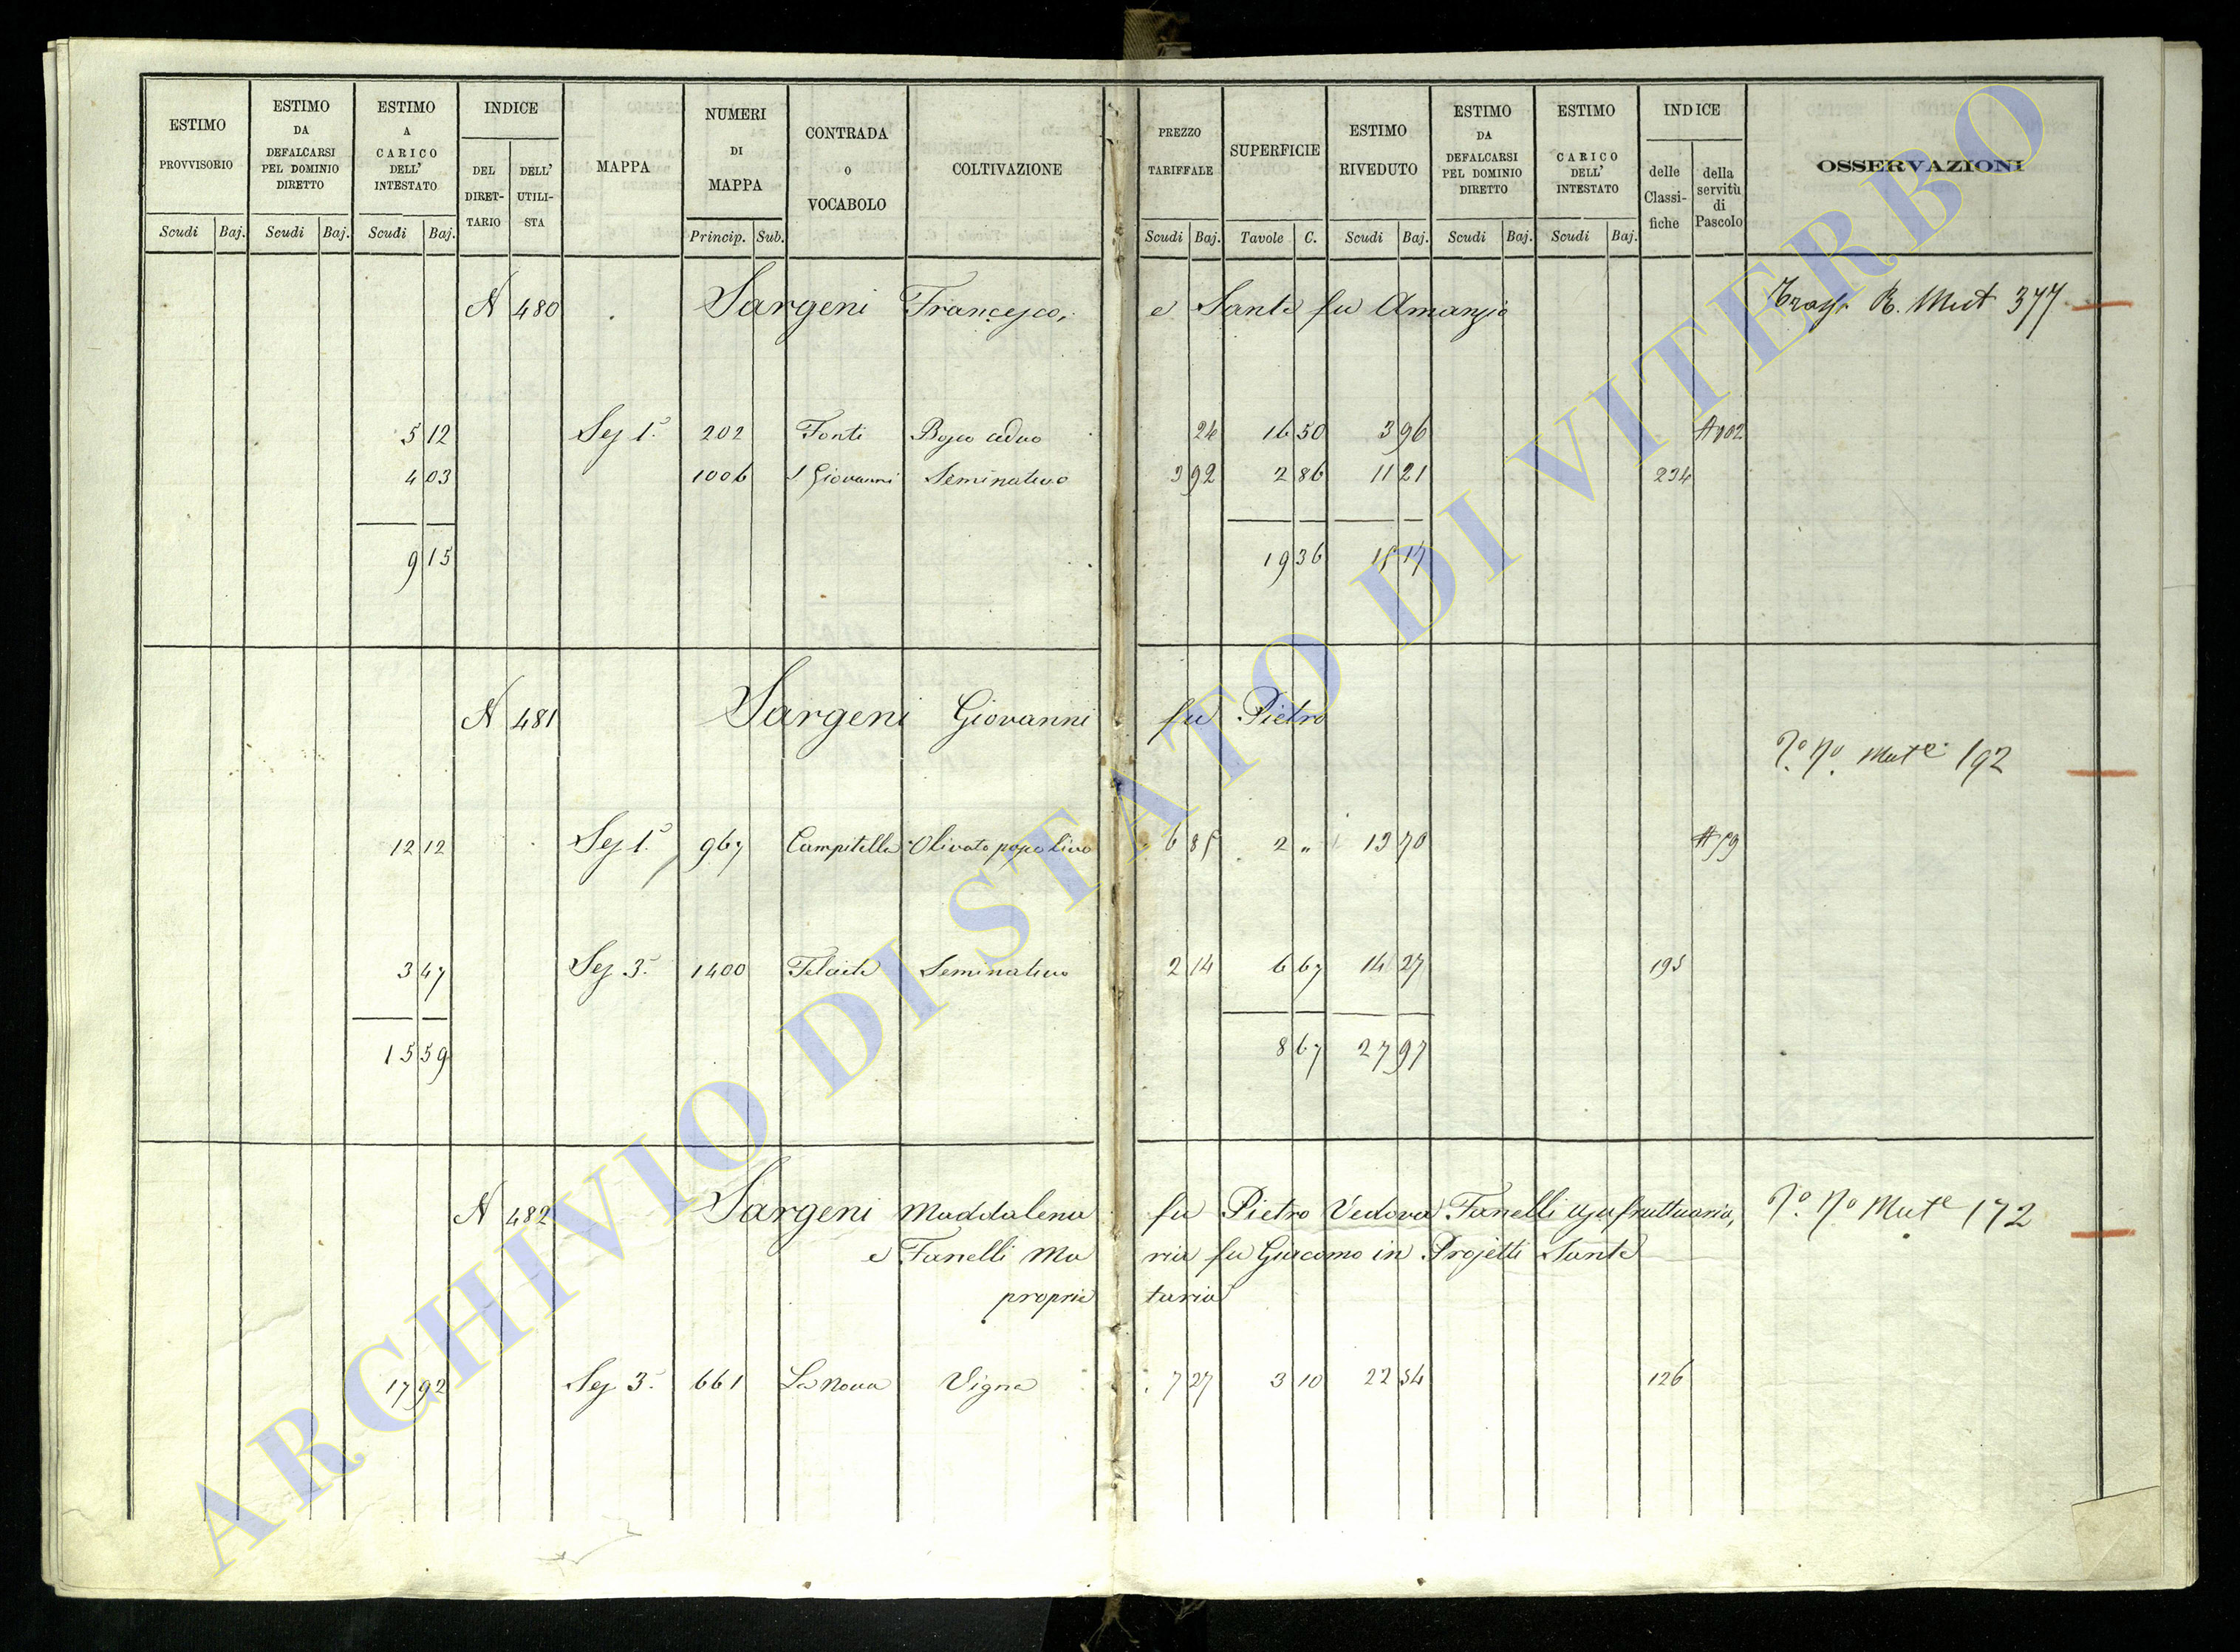 ESTIMO PROVVISORIO | ESTIMO DA DEFALCARSI PEL DOMINIO DIRETTO | ESTIMO A CARICO DELL' INTESTATO | INDICE | MAPPA | NUMERI DI MAPPA | CONTRADA O VOCABOLO | COLTIVAZIONE | PREZZO TARIFFALE | SUPERFICIE | ESTIMO RIVEDUTO | ESTIMO DA DEFALCARSI PEL DOMINIO DIRETTO | ESTIMO A CARICO DELL' INTESTATO | INDICE | OSSERVAZIONI
DEL DIRET-TARIO | DELL' UTILI-STA | delle Classi-fiche | della servitù di Pascolo
Scudi | Baj. | Scudi | Baj. | Scudi | Baj. | Princip. | Sub. | Scudi | Baj. | Tavole | C. | Scudi | Baj. | Scudi | Baj. | Scudi | Baj.
N 480 Sargeni Francesco, e Sante fu Amanzio R. Mut 377
5 12 Sez 1ª 202 Fonti Bosco ceduo 24 16 50 3 96
4 03 1006 S Giovanni Seminativo 3 92 2 86 11 21 234
9 15 19 36 15 17
N 481 Sargeni Giovanni fu Pietro
Mutе 192
12 12 Sez 1ª 967 Campitelle Olivato 6 85 2 „ 13 70 A 59
3 47 Sez 3ª 1400 Seminativo 2 14 6 67 14 27 195
15 59 8 67 27 97
N 482 Sargeni Maddalena fu Pietro Vedova Fanelli usufruttuaria, Mute 172
e Fanelli Ma ria fu Giacomo in Projetti Sante
proprie taria
17 92 Sez 3ª 661 La Nova Vigna 7 27 3 10 22 54 126
ARCHIVIO DI STATO DI VITERBO